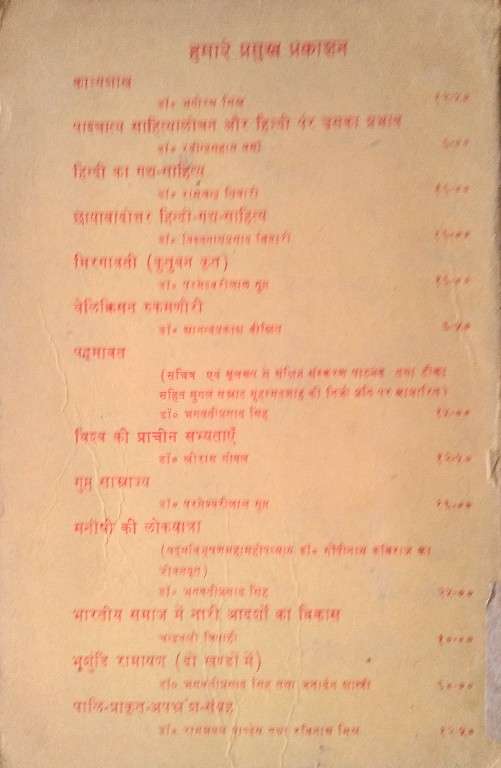 हमारे प्रमुख प्रकाशन
काव्यशास्त्र
डॉ० भगीरथ मिश्र
पाश्चात्य साहित्यालोचन और हिन्दी पर उसका प्रभाव
डॉ० रवीन्द्रसहाय वर्मा
हिन्दी का गद्य-साहित्य
डॉ० रामचन्द्र तिवारी
छायावादोत्तर हिन्दी-गद्य-साहित्य
डॉ० विश्वनाथप्रसाद तिवारी
मिरगावती (कुतुबन कृत)
डॉ० परमेश्वरीलाल गुप्त
वेलिक्रिसन रुकमणीरी
डॉ० आनन्दप्रकाश दीक्षित
पद्मावत
(सचित्र एवं मूलरूप में संस्करण पाठभेद तथा टीका
सहित मुगल सम्राट मुहम्मदशाह की निजी प्रति पर आधारित)
डॉ० भगवतीप्रसाद सिंह
विश्व की प्राचीन सभ्यताएँ
डॉ० श्रीराम गोयल
गुप्त साम्राज्य
डॉ० परमेश्वरीलाल गुप्त
मनीषी की लोकयात्रा
(पद्मविभूषणमहामहोपाध्याय डॉ० गोपीनाथ कविराज का
जीवनवृत्त)
डॉ० भगवतीप्रसाद सिंह
भारतीय समाज में नारी आदर्शों का विकास
चन्द्रबली त्रिपाठी
भुशुंडि रामायण (दो खण्डों में)
डॉ० भगवतीप्रसाद सिंह तथा जनार्दन शास्त्री
पालि-प्राकृत-अपभ्रंश-संग्रह
डॉ० रामअवध पाण्डेय तथा रविनाथ मिश्र